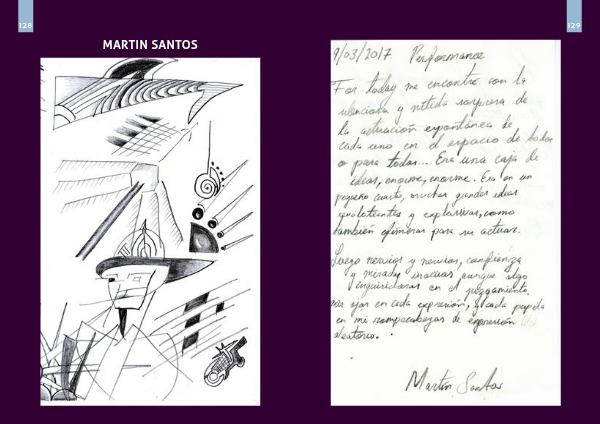 128
129
MARTIN SANTOS
9/03/2017. Performance
For today me encontré con la
silenciosa y nítida sorpresa de
la actuación espontánea de
cada uno en el espacio de todos
o para todos... Era una caja de
ideas, enorme, enorme. Era en un
pequeño cuarto, muchas grandes ideas
y explosivas, como
también efímeras para su actuar.
Luego nervios y nervios, confianza
y miradas inocuas aunque algo
inquisidoras en el juzgamiento,
mis ojos en cada expresión, y cada
en mi rompecabezas de expresión
aleatorio.
Martín Santos